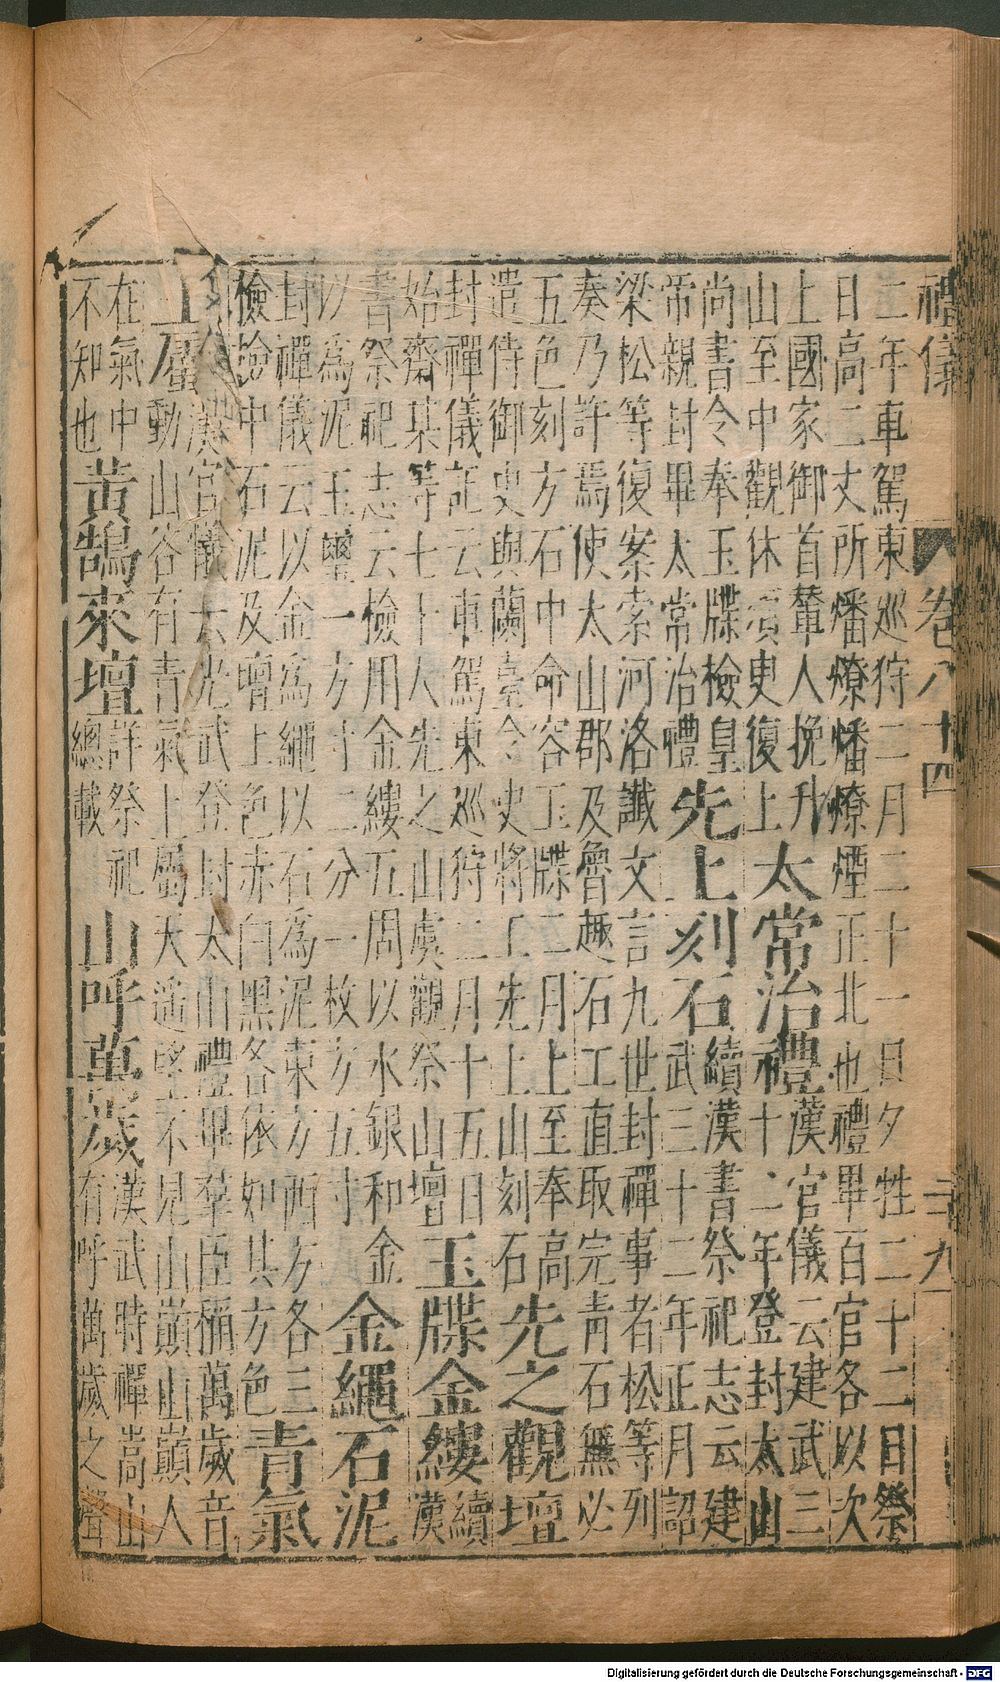 禮儀 卷八十四 三十九
二年車駕東巡狩二月二十一日夕牲二十二日祭
日高二丈所燔燎燔燎煙正北也禮畢百官各以次
上國家御首輦人挽升
山至中觀休須臾復上
太常治禮
漢官儀云建武三
十二年登封太山
尚書令奉玉牒檢皇
帝親封畢太常治禮
先上刻石
續漢書祭祀志云建
武三十二年正月詔
梁松等復案索河洛讖文言九世封禪事者松等列
奏乃許焉使太山郡及魯趣石工直取完青石無必
五色刻方石中命容玉牒二月上至奉高
遣侍御史與蘭臺令史將工先上山刻石
先之觀壇
封禪儀記云車駕東巡狩二月十五日
始齋某等七十人先之山虞觀祭山壇
玉牒金縷
續
漢
書祭祀志云檢用金縷五周以水銀和金
以為泥玉璽一方寸二分一枚方五寸
金繩石泥
封禪儀云以金為繩以石為泥東方西方各三
檢檢中石泥及壇上色赤白黑各依如其方色
青氣
上屬
漢官儀云光武登封太山禮畢羣臣稱萬歲音
動山谷有青氣上屬天遙望不見山巔山巔人
在氣中
不知也
黃鵠來壇
詳祭祀
總載
山呼萬歲
漢武時禪嵩山
有呼萬歲之聲
Digitalisierung gefördert durch die Deutsche Forschungsgemeinschaft - DFG